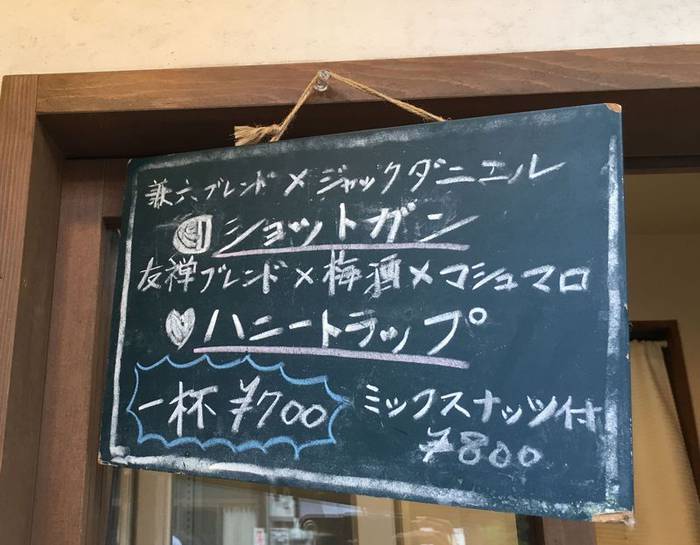 兼六ブレンド×ジャックダニエル
ショットガン
友禅ブレンド×梅酒×マシュマロ
ハニートラップ
一杯 ¥700
ミックスナッツ付
¥800